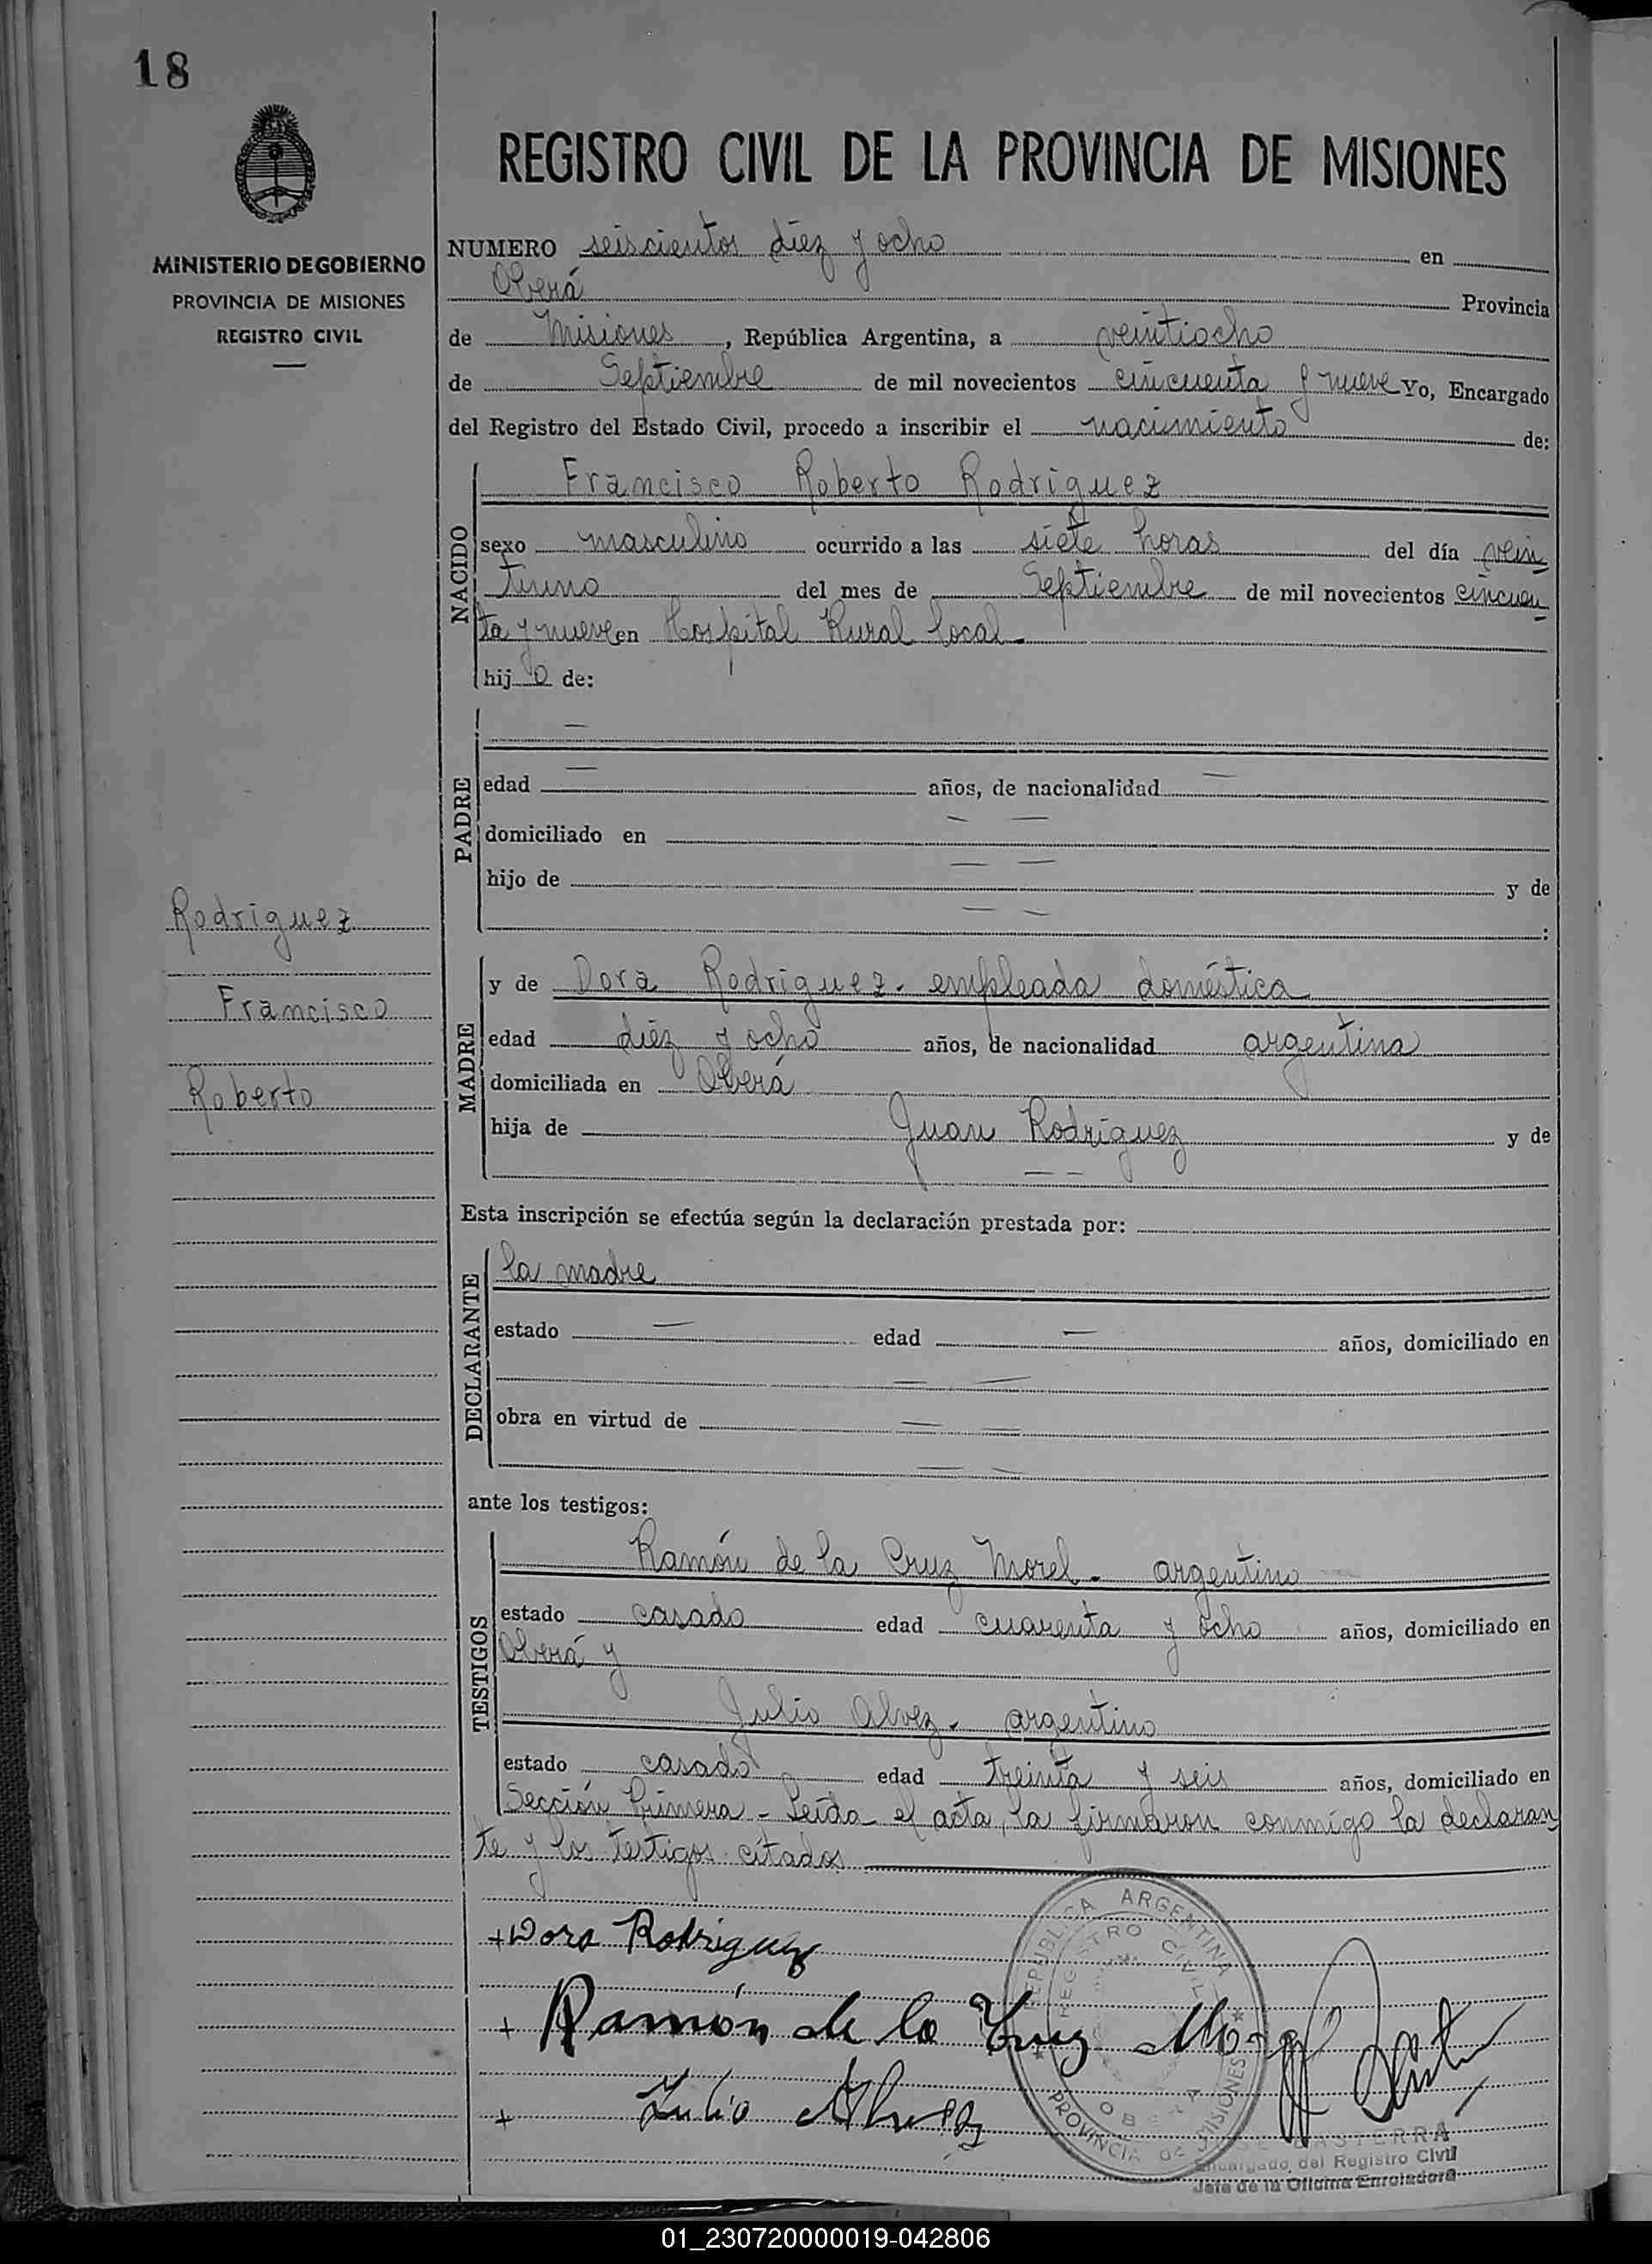 18
REGISTRO CIVIL DE LA PROVINCIA DE MISIONES
MINISTERIO DE GOBIERNO
PROVINCIA DE MISIONES
REGISTRO CIVIL
NUMERO seiscientos diez y ocho en
Oberá Provincia
de Misiones, República Argentina, a veintiocho
de Septiembre de mil novecientos cincuenta y nueve Yo, Encargado
del Registro del Estado Civil, procedo a inscribir el nacimiento de:
NACIDO
Francisco Roberto Rodriguez
sexo masculino ocurrido a las siete horas del día vein
tiuno del mes de Septiembre de mil novecientos cincuen
ta y nueve en Hospital Rural local.
hijo de:
PADRE
—
edad — años, de nacionalidad —
domiciliado en — —
hijo de — — y de
— — :
Rodriguez
Francisco
Roberto
MADRE
y de Dora Rodriguez. empleada doméstica
edad diez y ocho años, de nacionalidad argentina
domiciliada en Oberá
hija de Juan Rodríguez y de
— —
Esta inscripción se efectúa según la declaración prestada por:
DECLARANTE
la madre
estado — edad — años, domiciliado en
— —
obra en virtud de — —
— —
ante los testigos:
TESTIGOS
Ramón de la Cruz Morel. argentino
estado casado edad cuarenta y ocho años, domiciliado en
Oberá y
Julio Alvez. argentino
estado casado edad treinta y seis años, domiciliado en
Sección Primera - Leída el acta, la firmaron conmigo la declaran
te y los testigos citados
+ Dora Rodriguez
+ Ramón de la Cruz Morel
+ Julio Alvez
REPUBLICA ARGENTINA
REGISTRO CIVIL
OBERA
PROVINCIA DE MISIONES
Encargado del Registro Civil
Jefe de la Oficina Enroladora
01_230720000019-042806